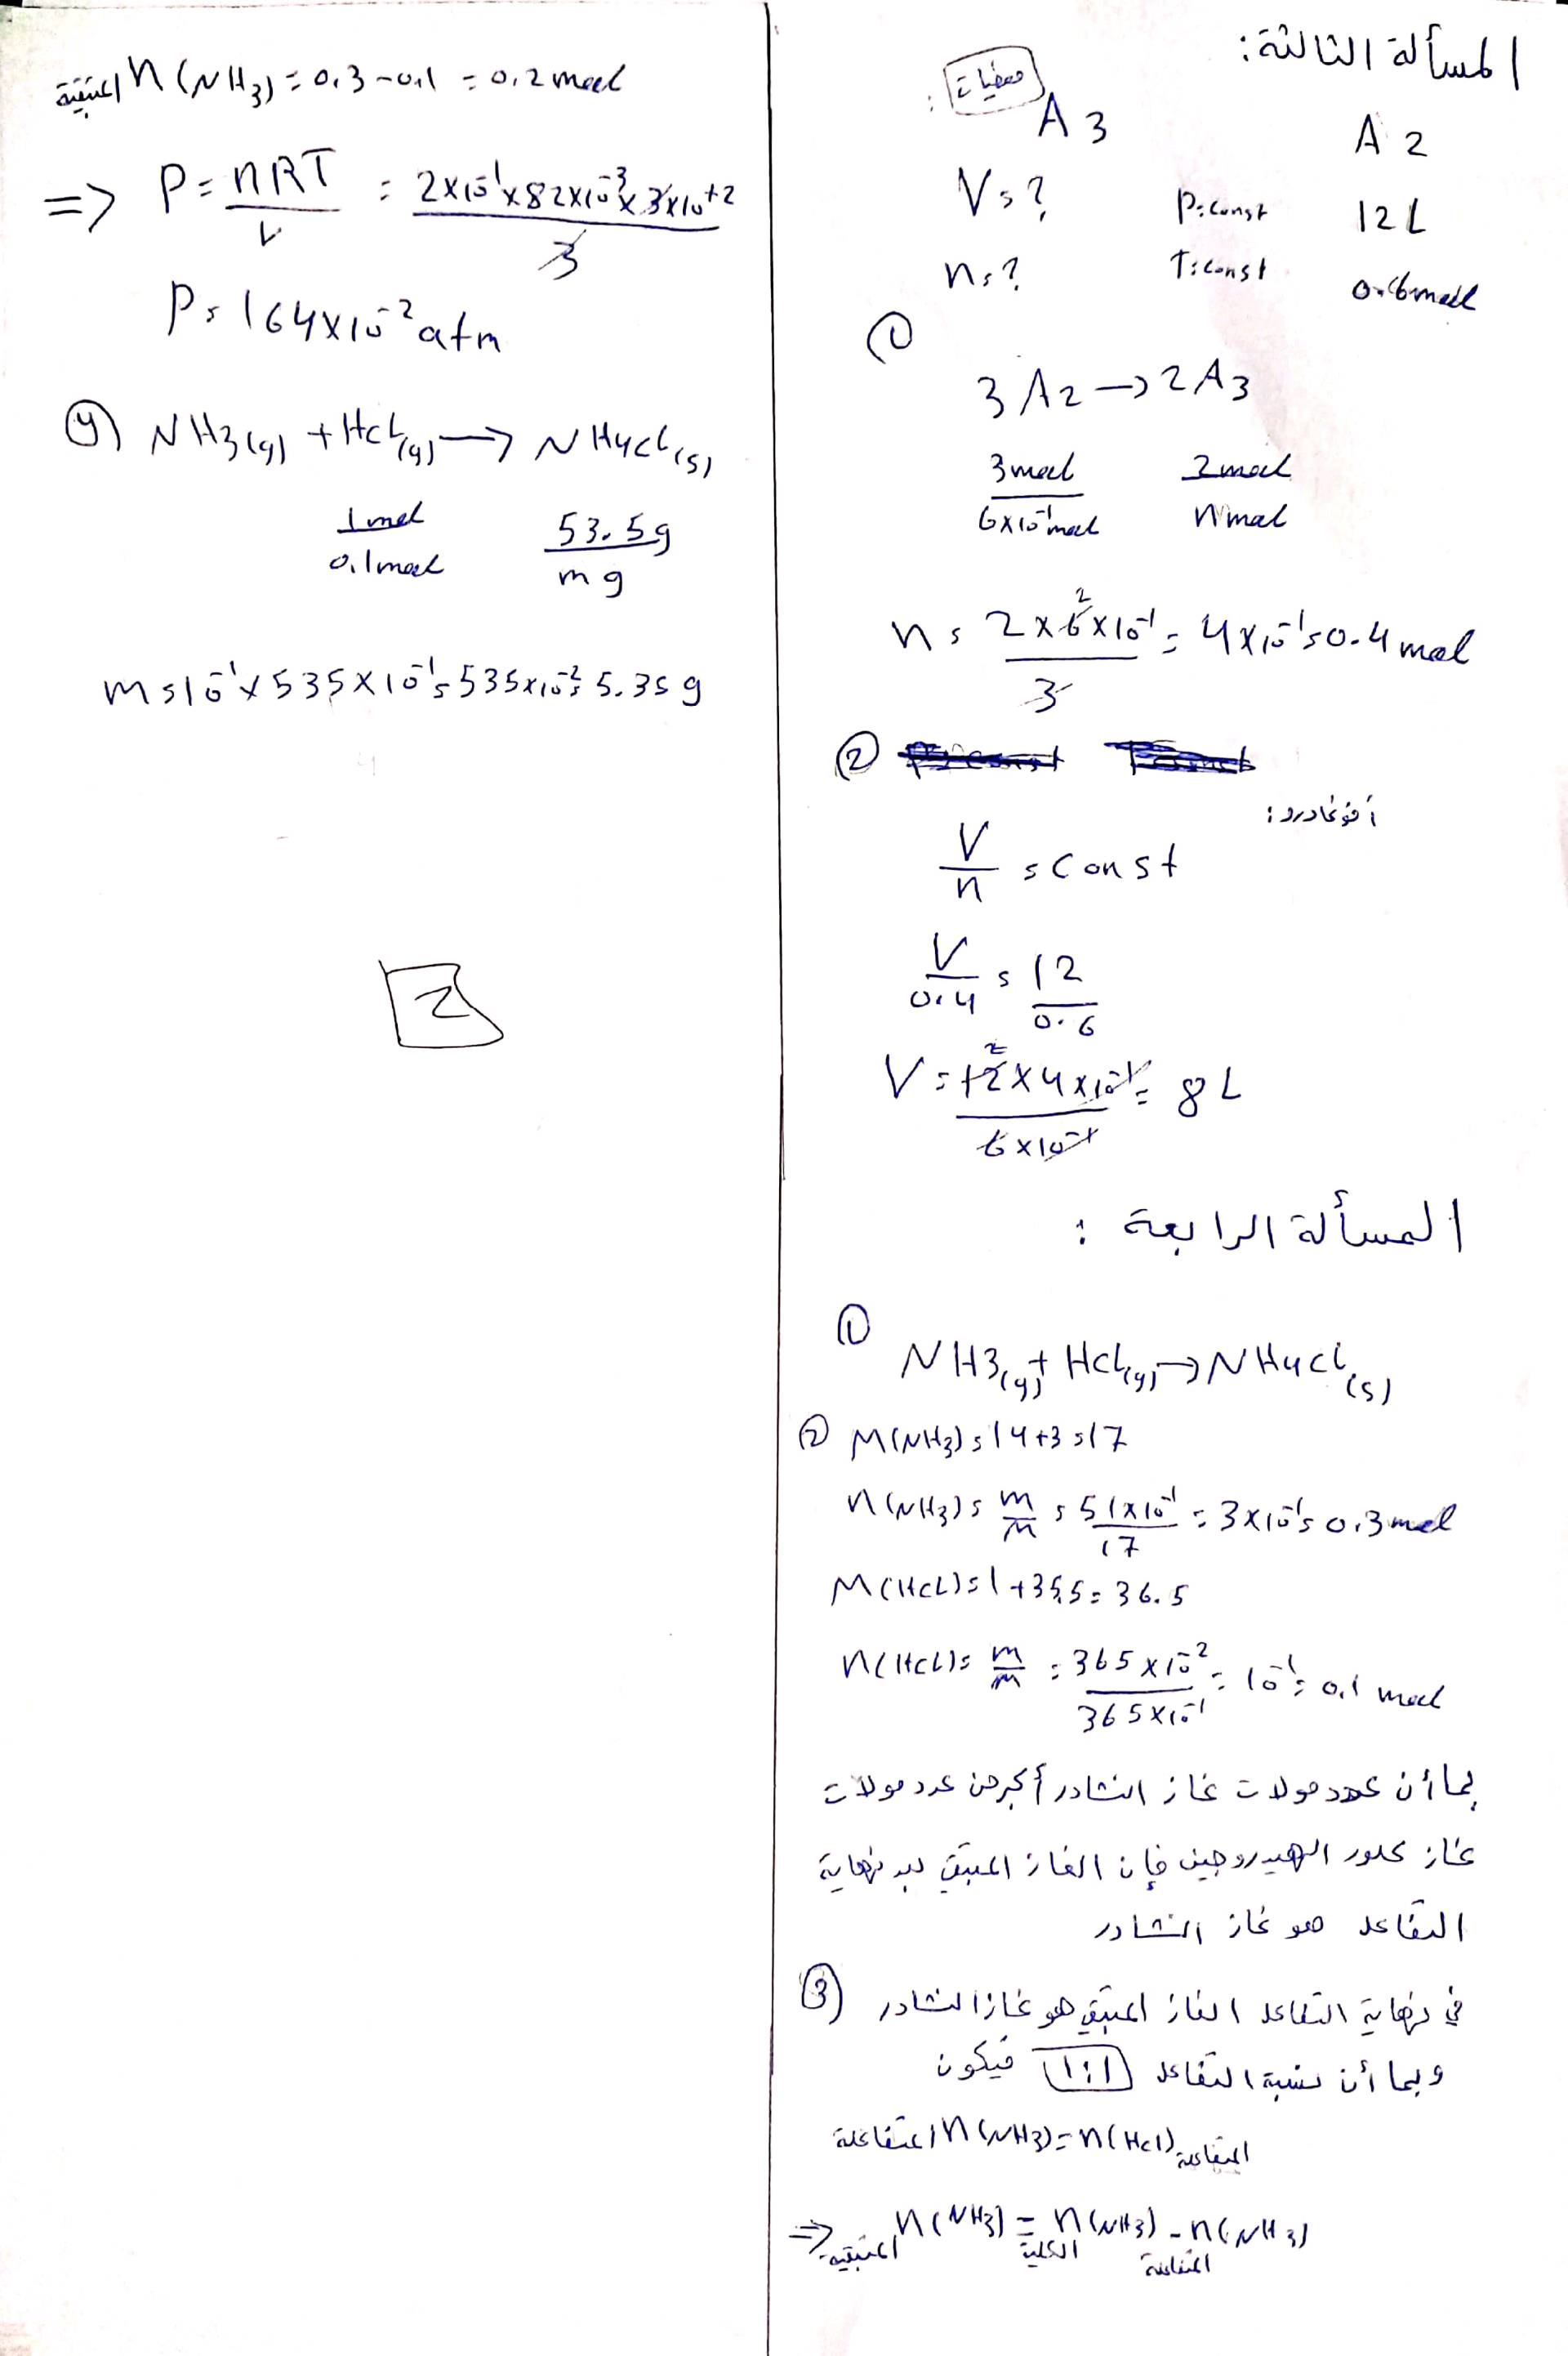 المسألة الثالثة:
معطيات:
A3 A2
V=? P:const 12 L
n=? T:const 0.6 mol
①
3 A2 → 2 A3
3 mol 2 mol
6×10⁻¹ mol n mol
n = 2×6×10⁻¹ / 3 = 4×10⁻¹ = 0.4 mol
②
أفوغادرو:
V/n = const
V/0.4 = 12/0.6
V = 12×4×10⁻¹ / 6×10⁻¹ = 8 L
المسألة الرابعة:
①
NH3(g) + HCl(g) → NH4Cl(s)
② M(NH3) = 14+3 = 17
n(NH3) = m/M = 51×10⁻¹ / 17 = 3×10⁻¹ = 0.3 mol
M(HCl) = 1+35,5 = 36.5
n(HCl) = m/M = 365×10⁻² / 365×10⁻¹ = 10⁻¹ = 0.1 mol
بما أن عدد مولات غاز النشادر أكبر من عدد مولات
غاز كلور الهيدروجين فإن الغاز المتبقي بعد نهاية
التفاعل هو غاز النشادر
③ في نهاية التفاعل الغاز المتبقي هو غاز النشادر
وبما أن نسبة التفاعل 1:1 فيكون
المتفاعلة n(NH3) = n(HCl) المتفاعلة
⇒ المتبقية n(NH3) = n(NH3) الكلية - n(NH3) المتفاعلة
المتبقية n(NH3) = 0,3-0,1 = 0,2 mol
=> P = nRT / V = 2×10⁻¹×82×10⁻³×3×10⁺² / 3
P = 164×10⁻² atm
④ NH3(g) + HCl(g) → NH4Cl(s)
1 mol 53.5 g
0,1 mol m g
m = 10⁻¹×535×10⁻¹ = 535×10⁻² = 5.35 g
2